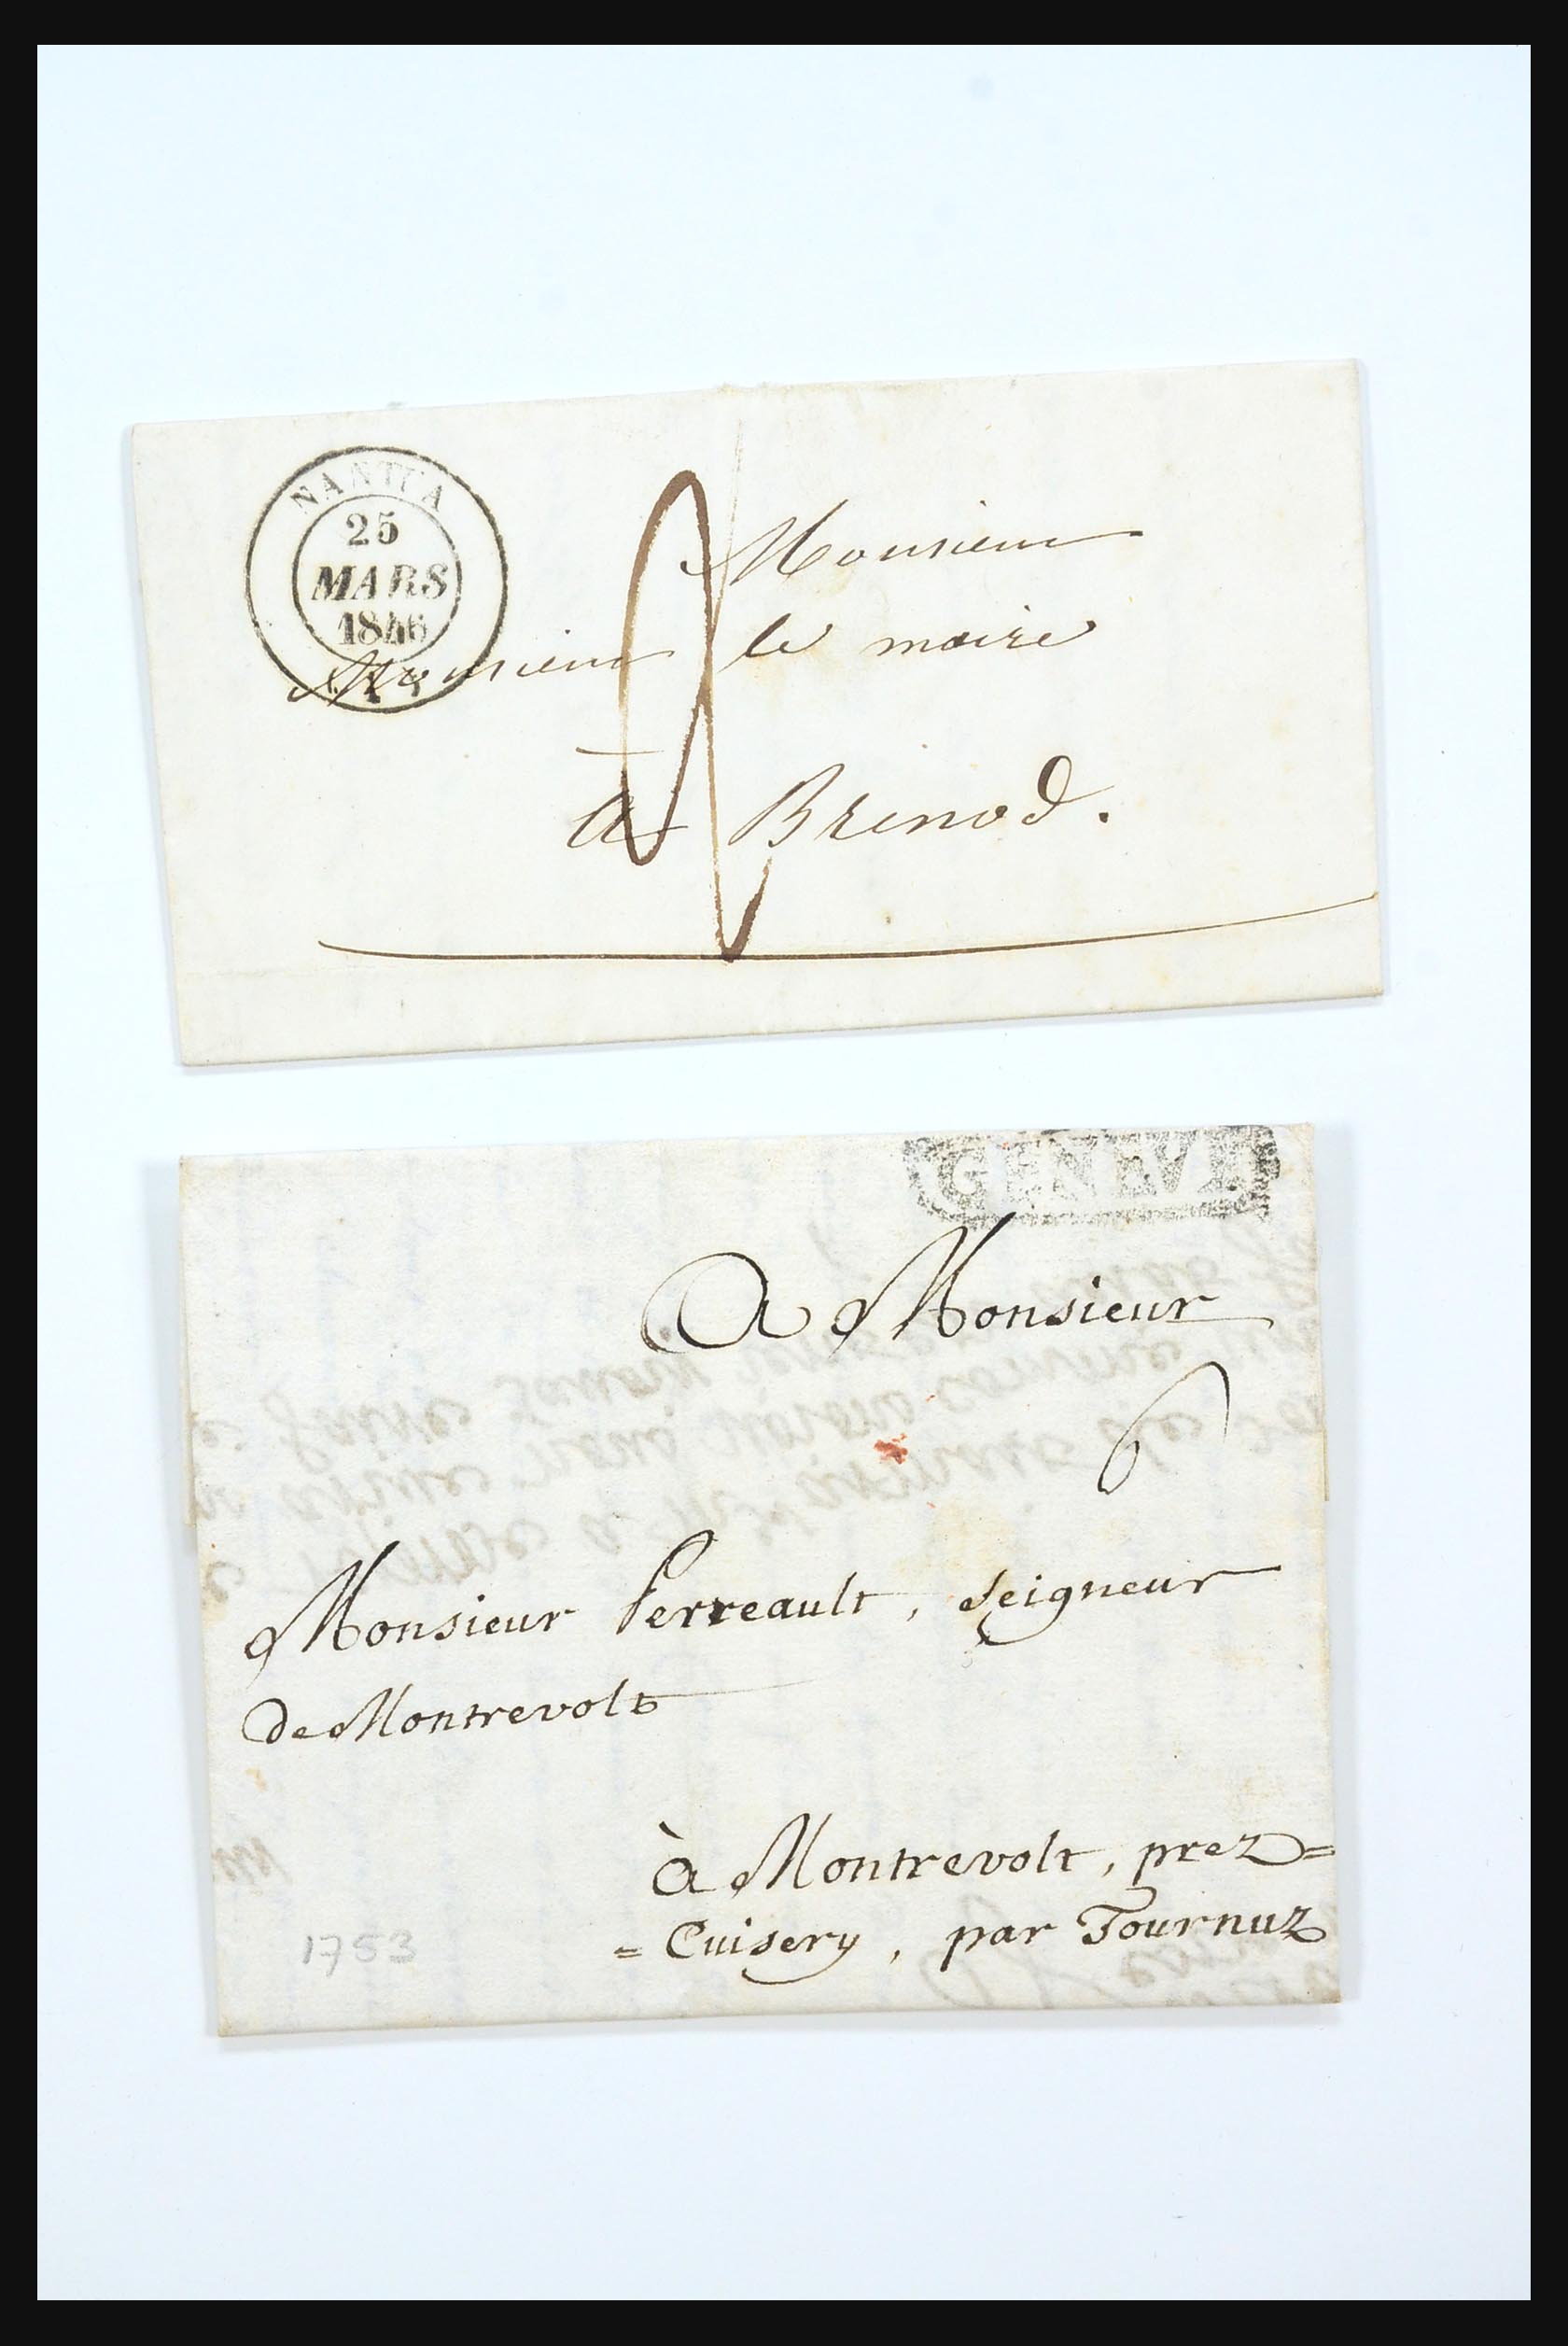 NANTUA
25
MARS
1846
Monsieur
Monsieur le maire
à Brénod.
2
GENEVE
A Monsieur
6
Monsieur Perreault, Seigneur
de Montrevolt
à Montrevolt, prez=
=Cuisery, par Tournuz
1753